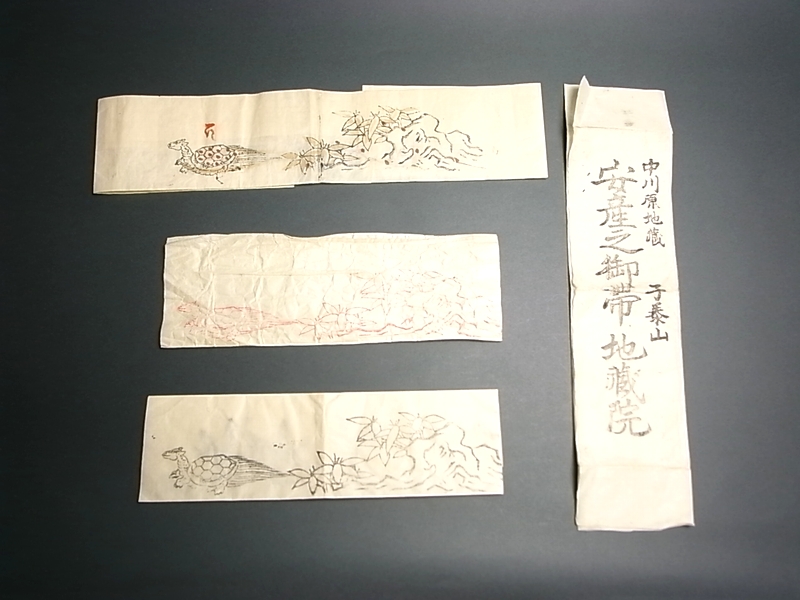 中川原地蔵 子泰山
安産之御帯 地蔵院